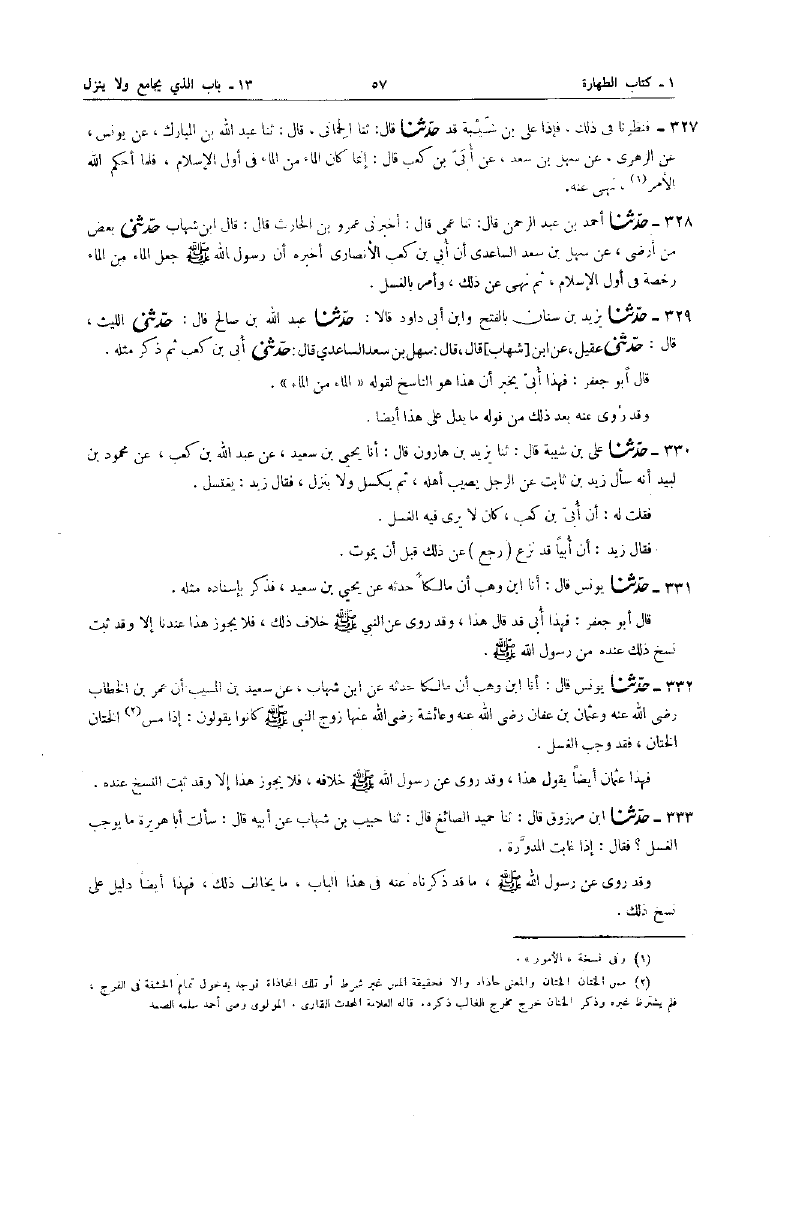 ١ ـ كتاب الطهارة ٥٧ ١٣ ـ باب الذي يجامع ولا ينزل
٣٢٧ ـ فنظرنا فى ذلك ، فإذا على بن شَيْبة قد حَدّثنا قال: ثنا الحِمّانى ، قال : ثنا عبد الله بن المبارك ، عن يونس ،
عن الزهرى ، عن سهل بن سعد ، عن أُبَىّ بن كعب قال : إنما كان الماء من الماء فى أول الإسلام ، فلما أحكم الله
الأمر(١) ، نهى عنه.
٣٢٨ ـ حَدّثنا أحمد بن عبد الرحمن قال: ثنا عمى قال : أخبرنى عمرو بن الحارث قال : قال ابن شهاب حَدّثنى بعض
من أرضى ، عن سهل بن سعد الساعدى أن أُبي بن كعب الأنصارى أخبره أن رسول الله ﷺ جعل الماء من الماء
رخصة فى أول الإسلام ، ثم نهى عن ذلك ، وأمر بالغسل .
٣٢٩ ـ حَدّثنا يزيد بن سنان بالفتح وابن أبى داود قالا : حَدّثنا عبد الله بن صالح قال : حَدّثنى الليث ،
قال : حَدّثنى عقيل ، عن ابن [شهاب] قال ، قال : سهل بن سعد الساعدي قال : حَدّثنى أُبى بن كعب ثم ذكر مثله .
قال أبو جعفر : فهذا أُبىّ يخبر أن هذا هو الناسخ لقوله « الماء من الماء » .
وقد رُوى عنه بعد ذلك من قوله ما يدل على هذا أيضا .
٣٣٠ ـ حَدّثنا على بن شيبة قال : ثنا يزيد بن هارون قال : أنا يحيى بن سعيد ، عن عبد الله بن كعب ، عن محمود بن
لبيد أنه سأل زيد بن ثابت عن الرجل يصيب أهله ، ثم يكسل ولا ينزل ، فقال زيد : يغتسل .
فقلت له : أن أُبىّ بن كعب ، كان لا يرى فيه الغسل .
فقال زيد : أن أُبياً قد نزع ( رجع ) عن ذلك قبل أن يموت .
٣٣١ ـ حَدّثنا يونس قال : أنا ابن وهب أن مالكاً حدثه عن يحيي بن سعيد ، فذكر بإسناده مثله .
قال أبو جعفر : فهذا أُبى قد قال هذا ، وقد روى عن النبي ﷺ خلاف ذلك ، فلا يجوز هذا عندنا إلا وقد ثبت
نسخ ذلك عنده من رسول الله ﷺ .
٣٣٢ ـ حَدّثنا يونس قال : أنا ابن وهب أن مالكا حدثه عن ابن شهاب ، عن سعيد بن المسيب أن عمر بن الخطاب
رضى الله عنه وعثمان بن عفان رضى الله عنه وعائشة رضى الله عنها زوج النبي ﷺ كانوا يقولون : إذا مس(٢) الختان
الختان ، فقد وجب الغسل .
فهذا عثمان أيضاً يقول هذا ، وقد روى عن رسول الله ﷺ خلافه ، فلا يجوز هذا إلا وقد ثبت النسخ عنده .
٣٣٣ ـ حَدّثنا ابن مرزوق قال : ثنا حميد الصائغ قال : ثنا حبيب بن شهاب عن أبيه قال : سألت أبا هريرة ما يوجب
الغسل ؟ فقال : إذا غابت المدوَّرة .
وقد روى عن رسول الله ﷺ ، ما قد ذكرناه عنه فى هذا الباب ، ما يخالف ذلك ، فهذا أيضاً دليل على
نسخ ذلك .
(١) وفى نسخة « الأمور » .
(٢) مس الختان الختان والمعنى حاذاه والا فحقيقة المس غير شرط أو تلك المحاذاة توجد بدخول تمام الحشفة فى الفرج ،
فلم يشترط غيره وذكر الختان خرج مخرج الغالب ذكره. قاله العلامة المحدث القارى ، المولوى وصى أحمد سلمه الصمد